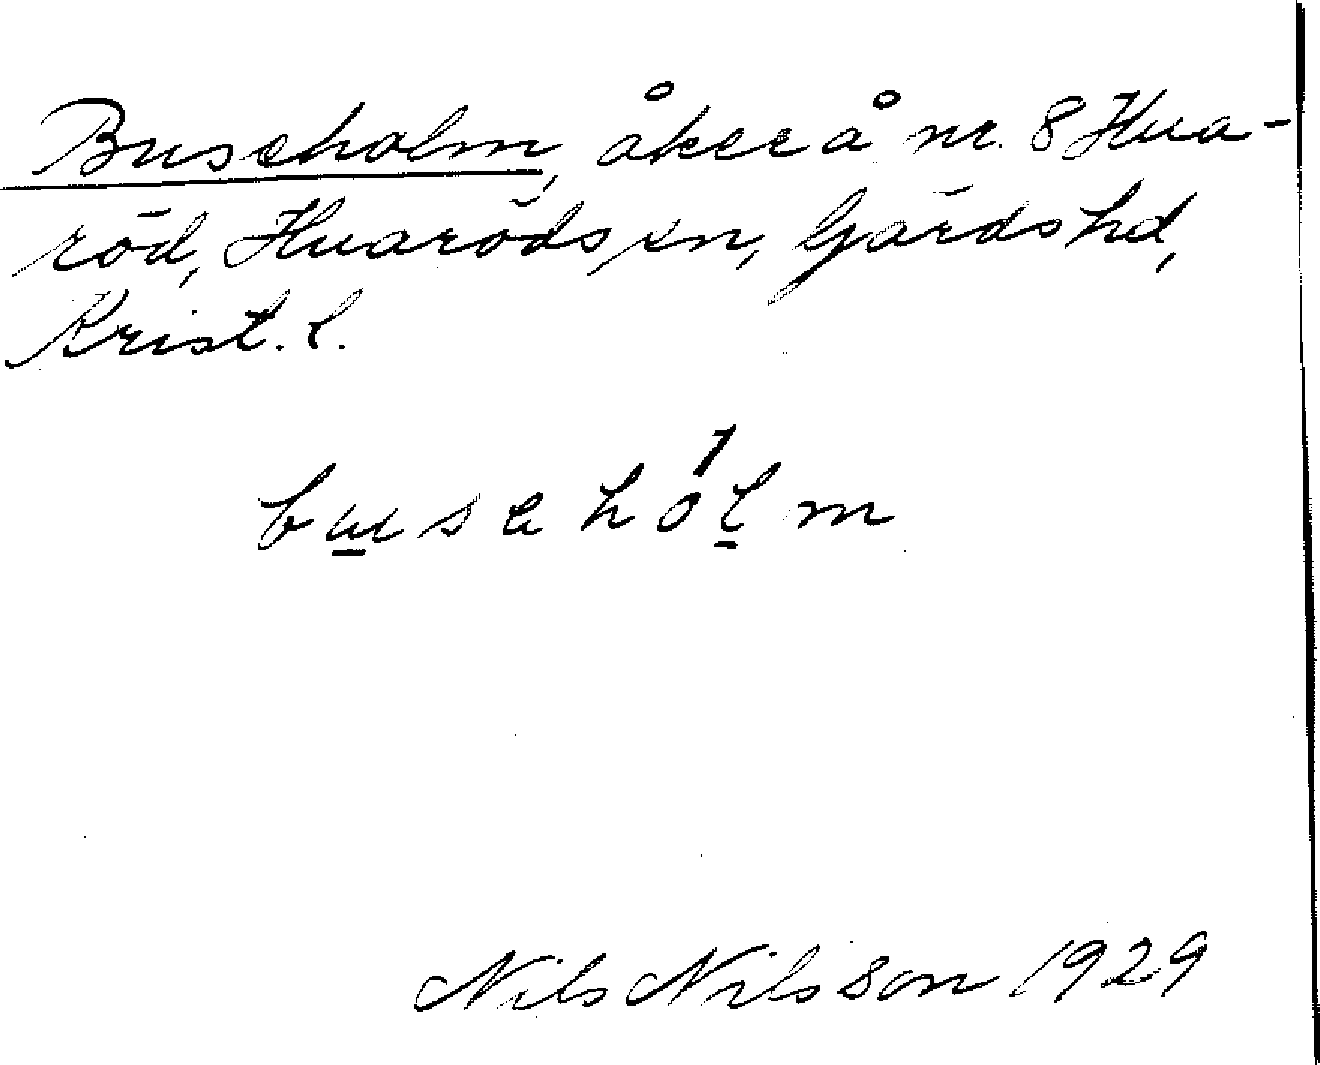 Buseholm, åker å nr. 8 Hua-
röd, Huaröds sn, Gärds hd,
Krist. l.
buseholm
Nils Nilsson 1929